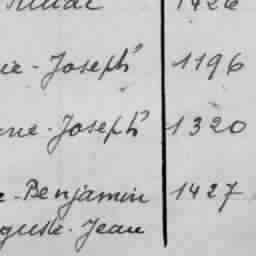 1426
ie-Joseph 1196
ne-Joseph 1320
e-Benjamin 1427
guste-Jean